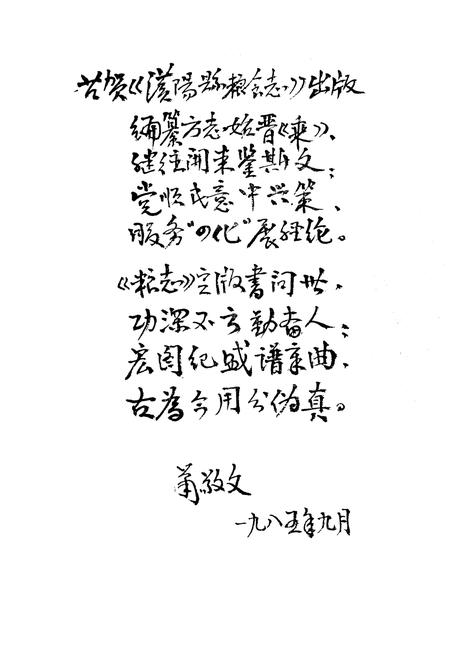 恭贺《汉阳县粮食志》出版
编纂方志始晋《乘》、
继往开来鉴斯文；
党顺民意中兴策、
服务“四化”展经纶。
《粮志》定版书问世、
功深不亏勤奋人；
宏图纪盛谱新曲、
古为今用分伪真。
萧敬文
一九八五年九月